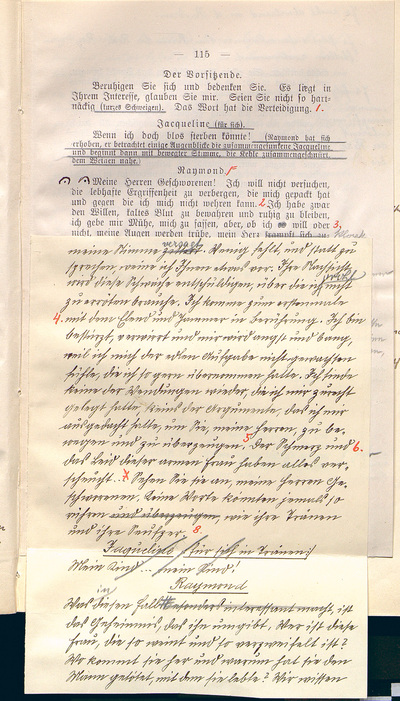 — 115 —
Der Vorsitzende.
Beruhigen Sie sich und bedenken Sie. Es liegt in
Ihrem Interesse, glauben Sie mir. Seien Sie nicht so hart-
näckig (kurzes Schweigen). Das Wort hat die Verteidigung. 1.
Jacqueline (für sich).
Wenn ich doch blos sterben könnte! (Raymond hat sich
erhoben, er betrachtet einige Augenblicke die zusammengesunkene Jacqueline
und beginnt dann mit bewegter Stimme, die Kehle zusammengeschnürt,
dem Weinen nahe.)
Raymond
Meine Herren Geschworenen! Ich will nicht versuchen,
die lebhafte Ergriffenheit zu verbergen, die mich gepackt hat
und gegen die ich mich nicht wehren kann. 2 Ich habe zwar
den Willen, kaltes Blut zu bewahren und ruhig zu bleiben,
ich gebe mir Mühe, mich zu fassen, aber, ob ich will oder 3.
nicht, meine Augen werden trübe, mein Herz krampft sich
meine Stimme versagt. Wenig fehlt, und statt zu
sprechen, weine ich Ihnen etwas vor. Ihre Nachsicht
wird diese Schwäche entschuldigen, über die ich nicht
zu erröten brauche. Ich komme zum erstenmale
4. mit dem Elend und Jammer in Berührung. Ich bin
bestürzt, verwirrt und mir wird angst und bang,
weil ich mich der edlen Aufgabe nicht gewachsen
fühle, die ich so gern übernommen hatte. Ich finde
keine der Wendungen wieder, die ich mir zurecht
gelegt hatte, keins der Argumente, das ich mir
ausgedacht hatte, um Sie, meine Herren, zu be-
wegen und zu überzeugen. 5. Der Schmerz und 6.
das Leid dieser armen Frau haben alles ver-
scheucht... Sehen Sie sie an, meine Herren Ge-
schworenen. Keine Worte könnten jemals so
rühren und überzeugen, wie ihre Tränen
und ihre Seufzer. 8.
Jaqueline (für sich in Tränen)
Mein Kind ... mein Kind!
Raymond
Was diesen Fall besonders interessant macht, ist
das Geheimnis, das ihn umgibt. Wer ist diese
Frau, die so weint und so verzweifelt ist?
Wo kommt sie her und warum hat sie den
Mann getötet, mit dem sie lebte? Wir wissen